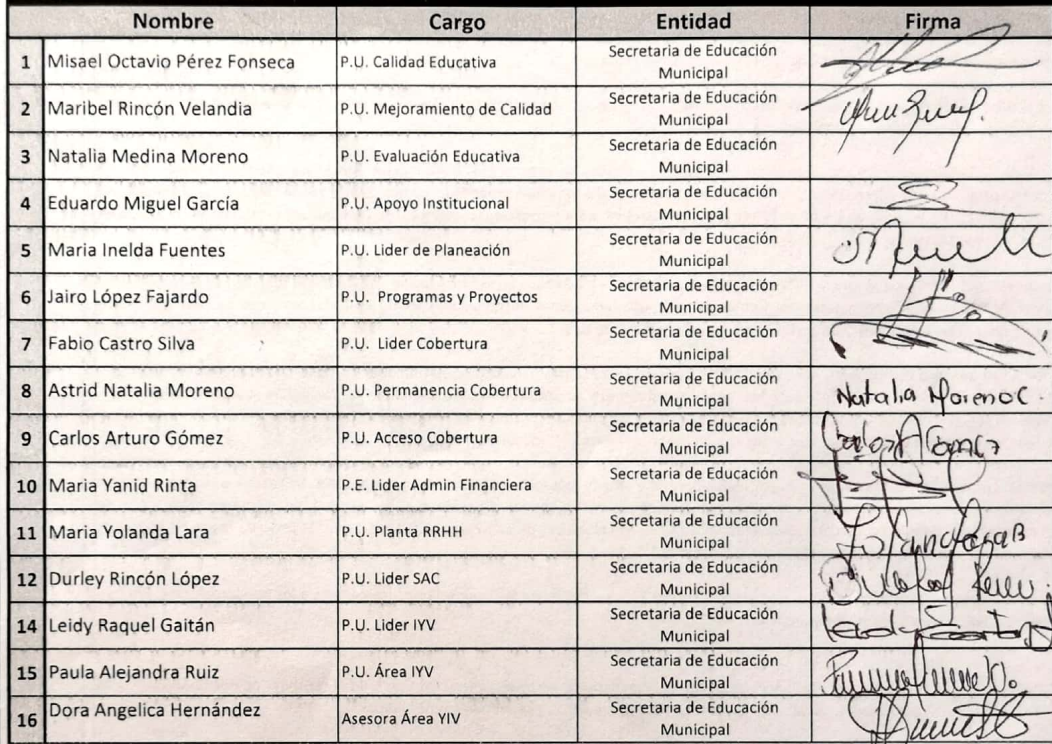 Nombre Cargo Entidad Firma
1 Misael Octavio Pérez Fonseca P.U. Calidad Educativa Secretaria de Educación
Municipal
2 Maribel Rincón Velandia P.U. Mejoramiento de Calidad Secretaria de Educación
Municipal
3 Natalia Medina Moreno P.U. Evaluación Educativa Secretaria de Educación
Municipal
4 Eduardo Miguel García P.U. Apoyo Institucional Secretaria de Educación
Municipal
5 Maria Inelda Fuentes P.U. Lider de Planeación Secretaria de Educación
Municipal
6 Jairo López Fajardo P.U. Programas y Proyectos Secretaria de Educación
Municipal
7 Fabio Castro Silva P.U. Lider Cobertura Secretaria de Educación
Municipal
8 Astrid Natalia Moreno P.U. Permanencia Cobertura Secretaria de Educación
Municipal Natalia Moreno C
9 Carlos Arturo Gómez P.U. Acceso Cobertura Secretaria de Educación
Municipal
10 Maria Yanid Rinta P.E. Lider Admin Financiera Secretaria de Educación
Municipal
11 Maria Yolanda Lara P.U. Planta RRHH Secretaria de Educación
Municipal
12 Durley Rincón López P.U. Lider SAC Secretaria de Educación
Municipal
14 Leidy Raquel Gaitán P.U. Lider IYV Secretaria de Educación
Municipal
15 Paula Alejandra Ruiz P.U. Área IYV Secretaria de Educación
Municipal
16 Dora Angelica Hernández Asesora Área YIV Secretaria de Educación
Municipal